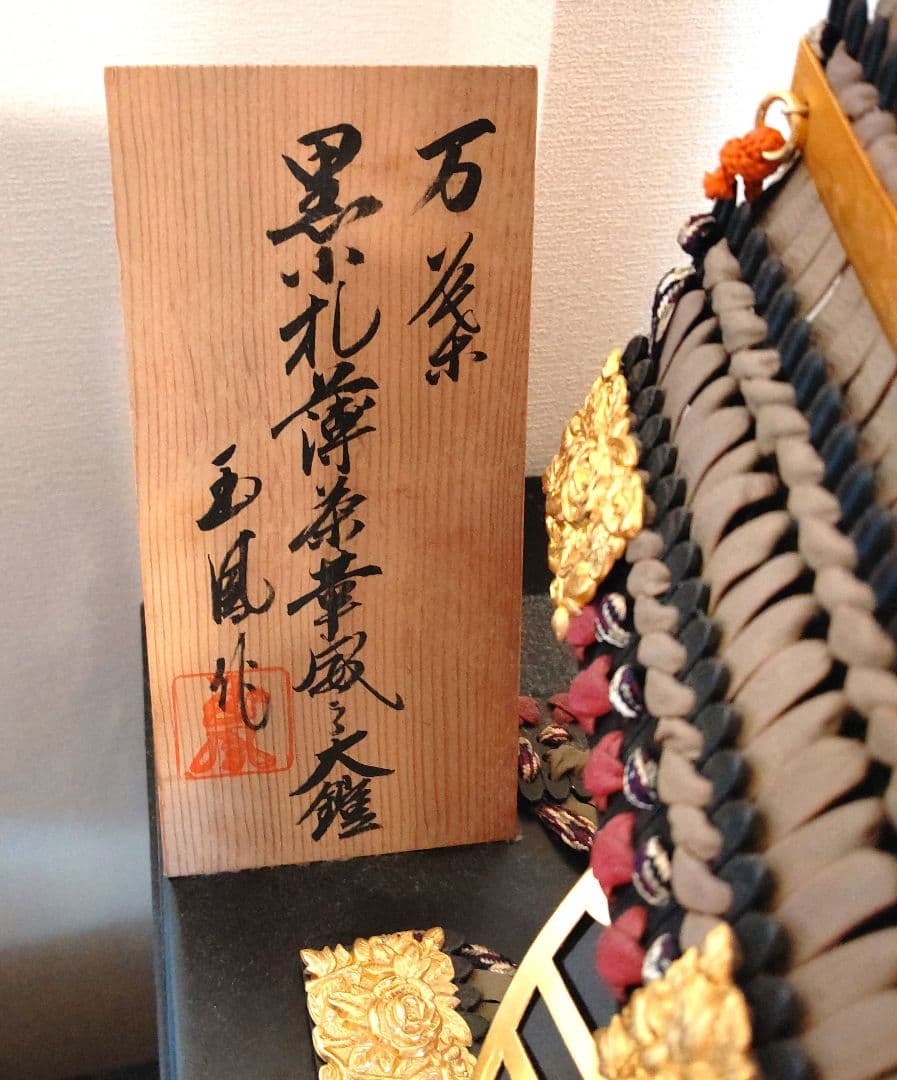 万葉
黒小札薄茶華威之大鎧
玉鳳作